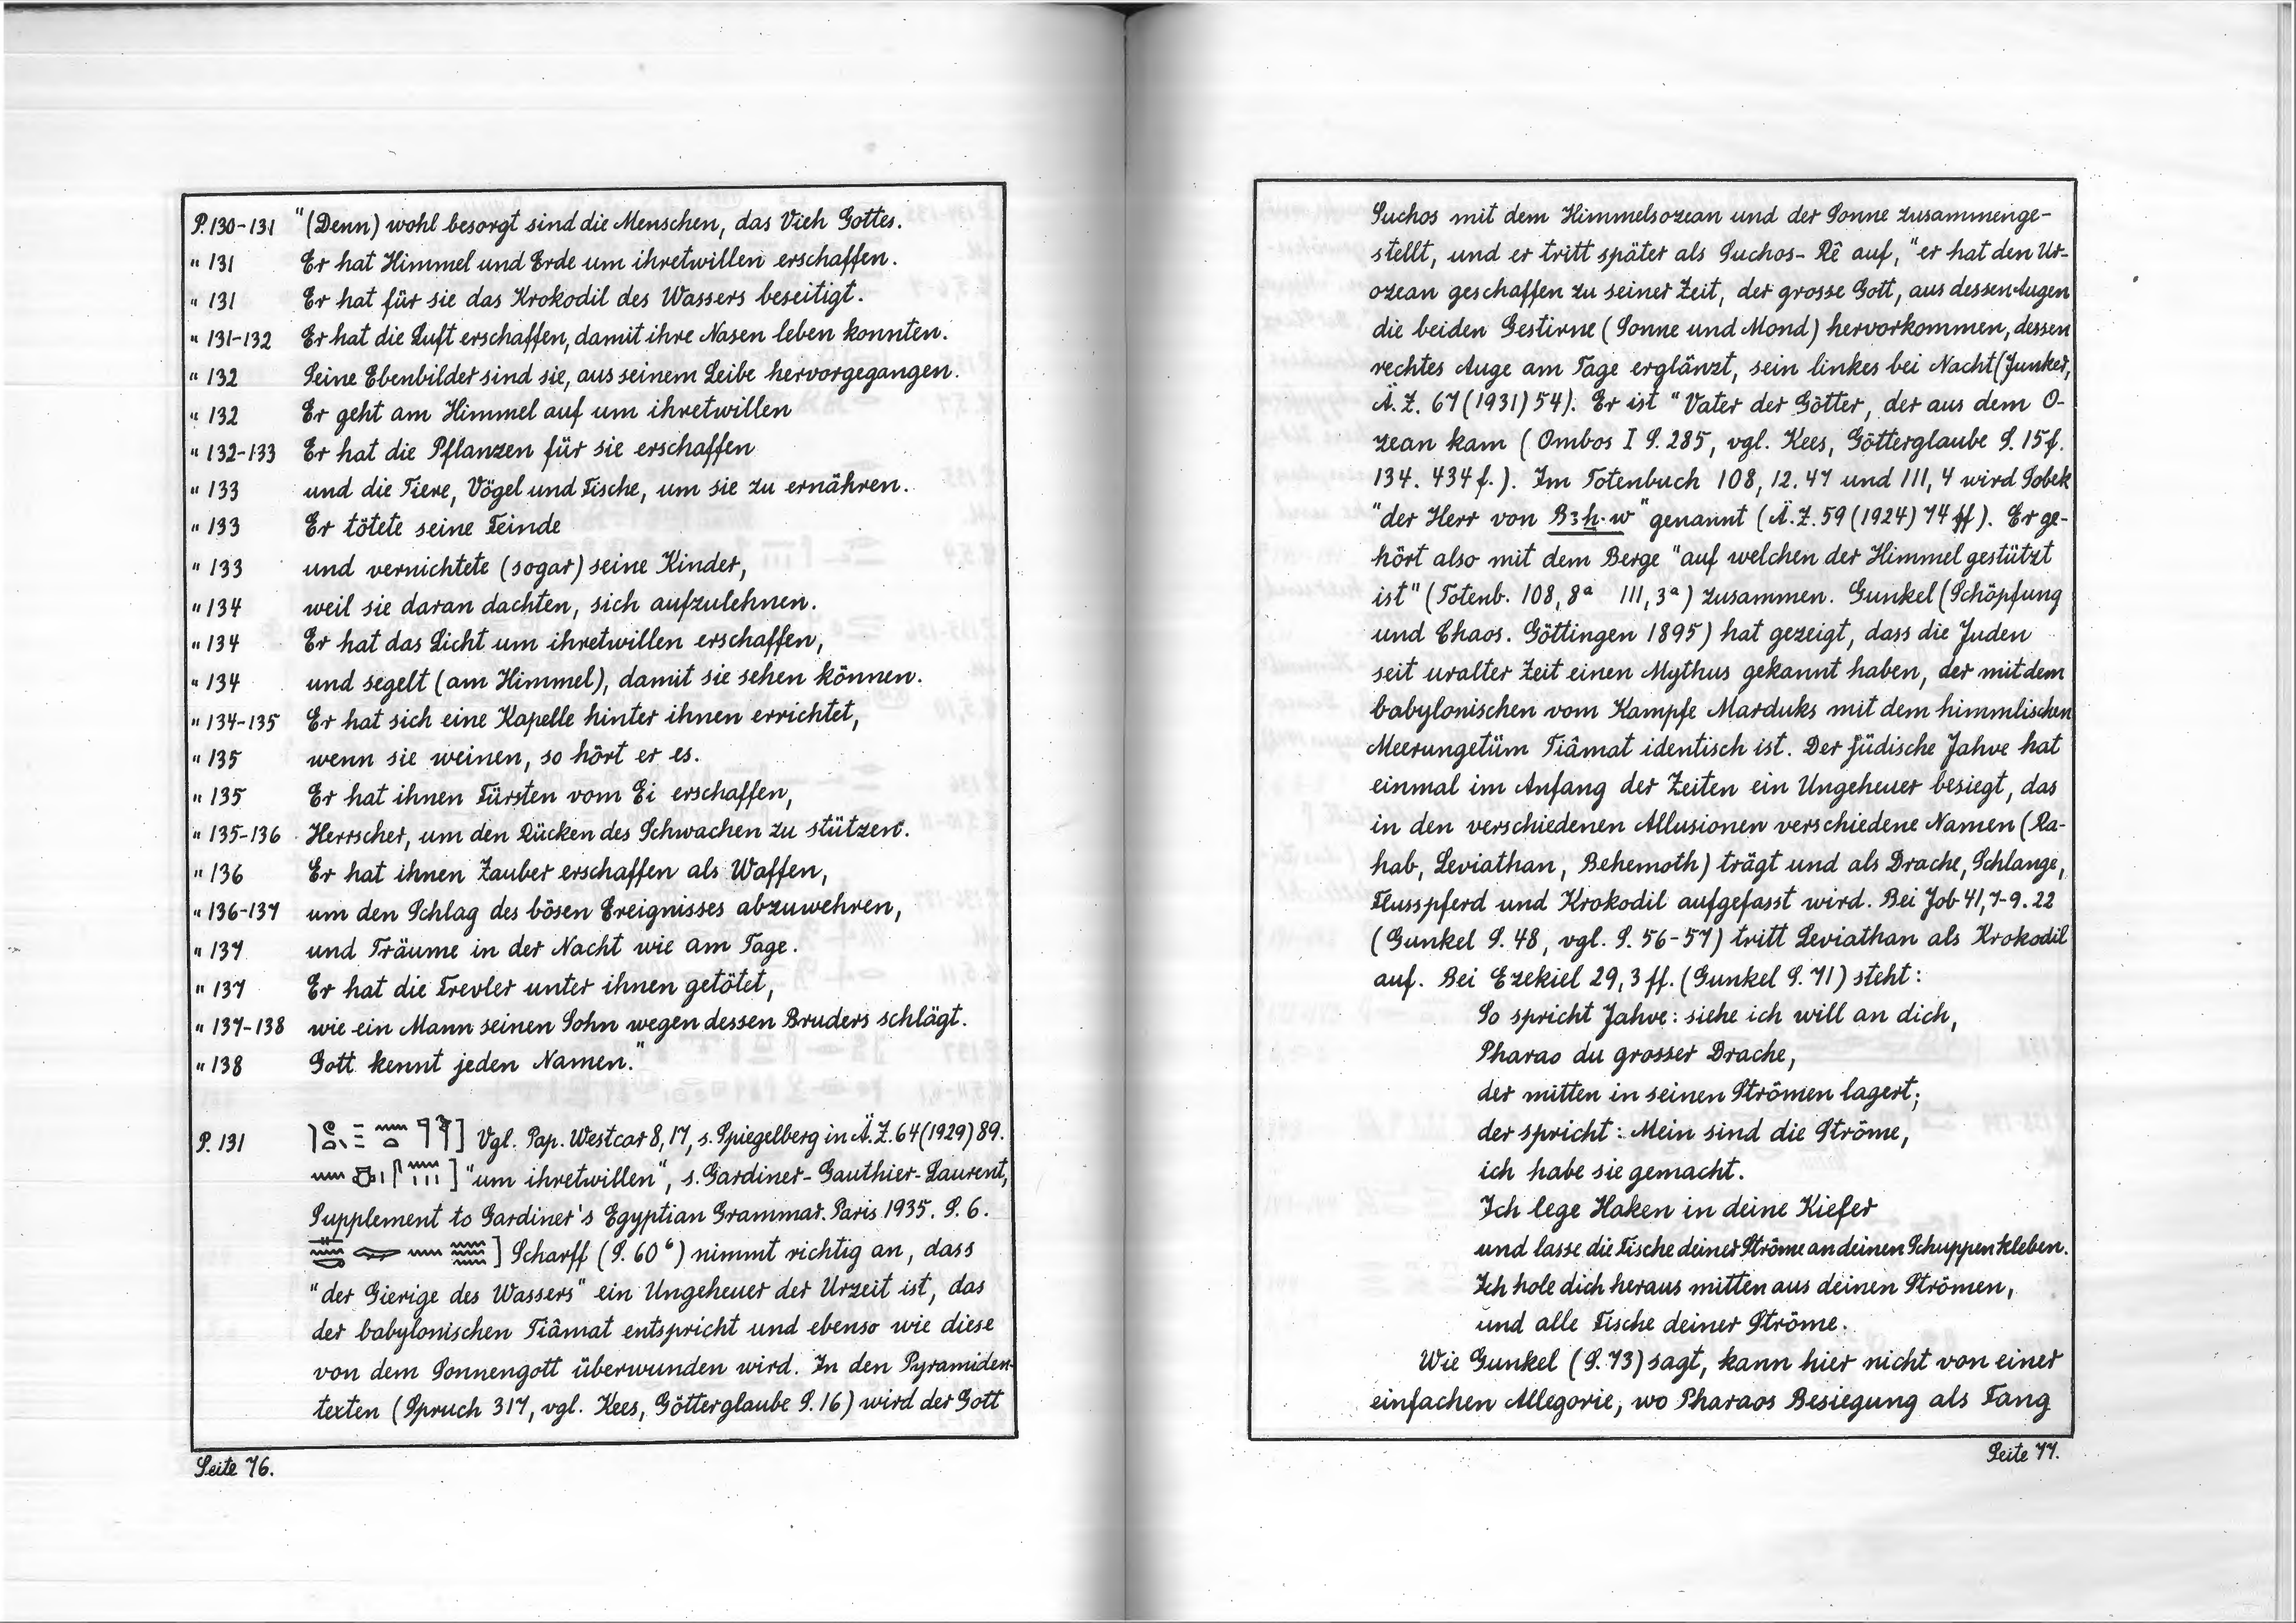 P. 130-131 "(Denn) wohl besorgt sind die Menschen, das Vieh Gottes.
" 131 Er hat Himmel und Erde um ihretwillen erschaffen.
" 131 Er hat für sie das Krokodil des Wassers beseitigt.
" 131-132 Er hat die Luft erschaffen, damit ihre Nasen leben konnten.
" 132 Seine Ebenbilder sind sie, aus seinem Leibe hervorgegangen.
" 132 Er geht am Himmel auf um ihretwillen
" 132-133 Er hat die Pflanzen für sie erschaffen
" 133 und die Tiere, Vögel und Fische, um sie zu ernähren.
" 133 Er tötete seine Feinde
" 133 und vernichtete (sogar) seine Kinder,
" 134 weil sie daran dachten, sich aufzulehnen.
" 134 Er hat das Licht um ihretwillen erschaffen,
" 134 und segelt (am Himmel), damit sie sehen können.
" 134-135 Er hat sich eine Kapelle hinter ihnen errichtet,
" 135 wenn sie weinen, so hört er es.
" 135 Er hat ihnen Fürsten vom Ei erschaffen,
" 135-136 Herrscher, um den Rücken des Schwachen zu stützen.
" 136 Er hat ihnen Zauber erschaffen als Waffen,
" 136-137 um den Schlag des bösen Ereignisses abzuwehren,
" 137 und Träume in der Nacht wie am Tage.
" 137 Er hat die Frevler unter ihnen getötet,
" 137-138 wie ein Mann seinen Sohn wegen dessen Bruders schlägt.
" 138 Gott kennt jeden Namen."
P. 131 ] Vgl. Pap. Westcar 8,17, s. Spiegelberg in Ä.Z. 64 (1929) 89.
] "um ihretwillen", s. Gardiner-Gauthier-Laurent,
Supplement to Gardiner's Egyptian Grammar. Paris 1935. S. 6.
] Scharff (S. 60⁶) nimmt richtig an, dass
"der Gierige des Wassers" ein Ungeheuer der Urzeit ist, das
der babylonischen Tiâmat entspricht und ebenso wie diese
von dem Sonnengott überwunden wird. In den Pyramiden-
texten (Spruch 317, vgl. Kees, Götterglaube S. 16) wird der Gott
Seite 76.
Suchos mit dem Himmelsozean und der Sonne zusammenge-
stellt, und er tritt später als Suchos-Rê auf, "er hat den Ur-
ozean geschaffen zu seiner Zeit, der grosse Gott, aus dessen Augen
die beiden Gestirne (Sonne und Mond) hervorkommen, dessen
rechtes Auge am Tage erglänzt, sein linkes bei Nacht (Junker,
Ä.Z. 67 (1931) 54). Er ist "Vater der Götter, der aus dem O-
zean kam (Ombos I S. 285, vgl. Kees, Götterglaube S. 15f.
134. 434f.). Im Totenbuch 108, 12. 47 und 111, 4 wird Sobek
"der Herr von Bꜣẖ·w" genannt (Ä.Z. 59 (1924) 74 ff). Er ge-
hört also mit dem Berge "auf welchen der Himmel gestützt
ist" (Totenb. 108, 8ᵃ 111, 3ᵃ) zusammen. Gunkel (Schöpfung
und Chaos. Göttingen 1895) hat gezeigt, dass die Juden
seit uralter Zeit einen Mythus gekannt haben, der mit dem
babylonischen vom Kampfe Marduks mit dem himmlischen
Meerungetüm Tiâmat identisch ist. Der jüdische Jahve hat
einmal im Anfang der Zeiten ein Ungeheuer besiegt, das
in den verschiedenen Allusionen verschiedene Namen (Ra-
hab, Leviathan, Behemoth) trägt und als Drache, Schlange,
Flusspferd und Krokodil aufgefasst wird. Bei Job 41, 7-9. 22
(Gunkel S. 48, vgl. S. 56-57) tritt Leviathan als Krokodil
auf. Bei Ezekiel 29, 3 ff. (Gunkel S. 71) steht:
So spricht Jahve: siehe ich will an dich,
Pharao du grosser Drache,
der mitten in seinen Strömen lagert;
der spricht: Mein sind die Ströme,
ich habe sie gemacht.
Ich lege Haken in deine Kiefer
und lasse die Fische deiner Ströme an deinen Schuppen kleben.
Ich hole dich heraus mitten aus deinen Strömen,
und alle Fische deiner Ströme.
Wie Gunkel (S. 73) sagt, kann hier nicht von einer
einfachen Allegorie, wo Pharaos Besiegung als Fang
Seite 77.